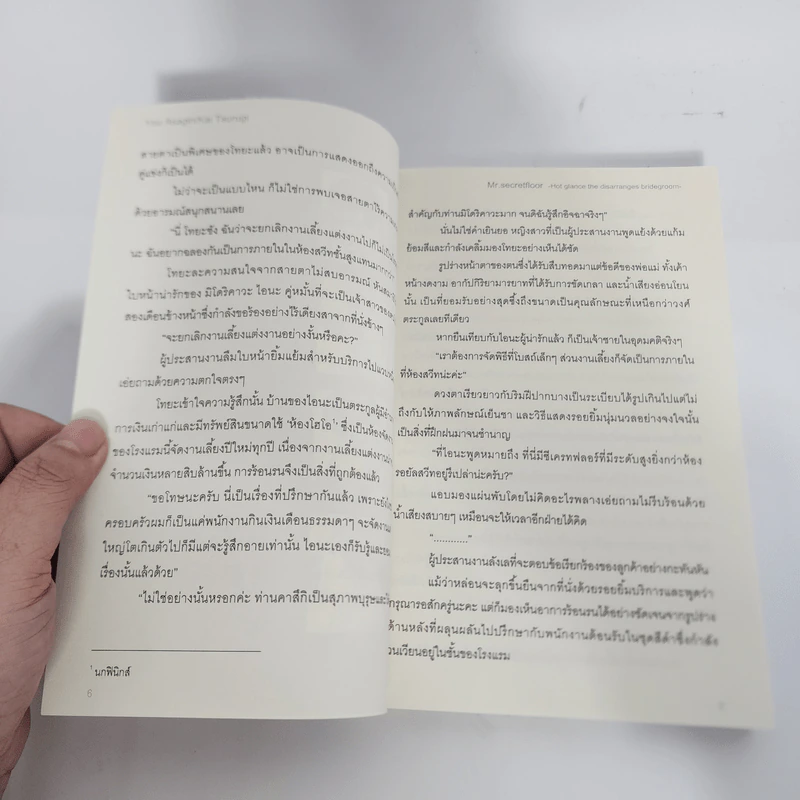 สายตาเป็นพิเศษของโทยะแล้ว อาจเป็นการแสดงออกถึงความ
คู่แข่งก็เป็นได้
ไม่ว่าจะเป็นแบบไหน ก็ไม่ใช่การพบเจอสายตาไร้ความ
ด้วยอารมณ์สนุกสนานเลย
"นี่ โทยะซัง ฉันว่าจะยกเลิกงานเลี้ยงแต่งงานไปก็ไม่เป็นไร
นะ ฉันอยากฉลองกันเป็นการภายในในห้องสวีทชั้นสูงแทนมากกว่า
โทยะละความสนใจจากสายตาไม่สบอารมณ์ หันสม
ใบหน้าน่ารักของ มิโดริคาวะ ไอนะ คู่หมั้นที่จะเป็นเจ้าสาวของ
สองเดือนข้างหน้าซึ่งกำลังขอร้องอย่างไร้เดียงสาจากที่นั่งข้างๆ
"จะยกเลิกงานเลี้ยงแต่งงานอย่างงั้นหรือคะ?"
ผู้ประสานงานลืมใบหน้ายิ้มแย้มสำหรับบริการไป
เอ่ยถามด้วยความตกใจตรงๆ
โทยะเข้าใจความรู้สึกนั้น บ้านของไอนะเป็นตระกูลผู้มี
การเงินเก่าแก่และมีทรัพย์สินขนาดใช้ 'ห้องโฮโอ¹' ซึ่งเป็นห้องจัด
ของโรงแรมนี้จัดงานเลี้ยงปีใหม่ทุกปี เนื่องจากงานเลี้ยงแต่งงาน
จำนวนเงินหลายสิบล้านขึ้น การร้อนรนจึงเป็นสิ่งที่ถูกต้องแล้ว
"ขอโทษนะครับ นี่เป็นเรื่องที่ปรึกษากันแล้ว เพราะยังไง
ครอบครัวผมก็เป็นแค่พนักงานกินเงินเดือนธรรมดาๆ จะจัดงาน
ใหญ่โตเกินตัวไปก็มีแต่จะรู้สึกอายเท่านั้น ไอนะเองก็รับรู้และยอม
เรื่องนั้นแล้วด้วย"
"ไม่ใช่อย่างนั้นหรอกค่ะ ท่านคาสึกิเป็นสุภาพบุรุษและ
¹ นกฟินิกส์
6
Mr.secretfloor -Hot glance the disarranges bridegroom-
สำคัญกับท่านมิโดริคาวะมาก จนดิฉันรู้สึกอิจฉาจริงๆ"
นั่นไม่ใช่คำเยินยอ หญิงสาวที่เป็นผู้ประสานงานพูดแย้งด้วยแก้ม
ย้อมสีและกำลังเคลิ้มมองโทยะอย่างเห็นได้ชัด
รูปร่างหน้าตาของตนซึ่งได้รับสืบทอดมาแต่ข้อดีของพ่อแม่ ทั้งเค้า
หน้างดงาม อากัปกิริยามารยาทที่ได้รับการขัดเกลา และน้ำเสียงอ่อนโยน
นั้น เป็นที่ยอมรับอย่างสุดซึ้งถึงขนาดเป็นคุณลักษณะที่เหนือกว่าวงศ์
ตระกูลเลยทีเดียว
หากยืนเทียบกับไอนะผู้น่ารักแล้ว ก็เป็นเจ้าชายในอุดมคติจริงๆ
"เราต้องการจัดพิธีที่โบสถ์เล็กๆ ส่วนงานเลี้ยงก็จัดเป็นการภายใน
ที่ห้องสวีทน่ะค่ะ"
ดวงตาเรียวยาวกับริมฝีปากบางเป็นระเบียบได้รูปเกินไปแต่ไม่
ถึงกับให้ภาพลักษณ์เย็นชา และวิธีแสดงรอยยิ้มนุ่มนวลอย่างจงใจนั้น
เป็นสิ่งที่ฝึกฝนมาจนชำนาญ
"ที่ไอนะพูดหมายถึง ที่นี่มีซีเครทฟลอร์ที่มีระดับสูงยิ่งกว่าห้อง
รอยัลสวีทอยู่รึเปล่าน่ะครับ?"
แอบมองแผ่นพับโดยไม่คิดอะไรพลางเอ่ยถามไม่รีบร้อนด้วย
น้ำเสียงสบายๆ เหมือนจะให้เวลาอีกฝ่ายได้คิด
"............"
ผู้ประสานงานลังเลที่จะตอบข้อเรียกร้องของลูกค้าอย่างกะทันหัน
แม้ว่าหล่อนจะลุกขึ้นยืนจากที่นั่งด้วยรอยยิ้มบริการและพูดว่า
กรุณารอสักครู่นะคะ แต่ก็มองเห็นอาการร้อนรนได้อย่างชัดเจนจากรูปร่าง
ด้านหลังที่ผลุนผลันไปปรึกษากับพนักงานต้อนรับในชุดสีดำซึ่งกำลัง
วนเวียนอยู่ในชั้นของโรงแรม